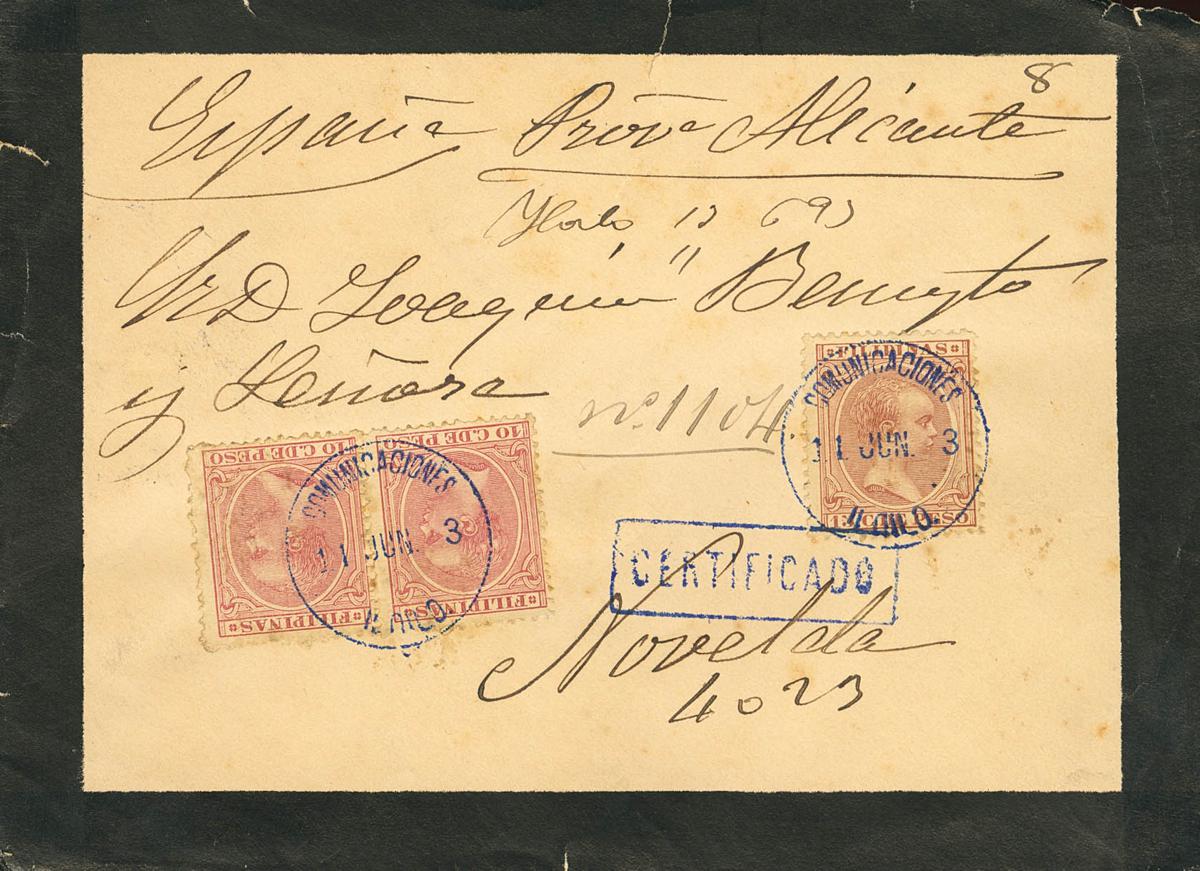 8
España Prov.ª Alicante
Yloilo 13 6 93
Sr D Joaquin Benyto
y Señora
nº 1104.
FILIPINAS
COMUNICACIONES
11 JUN. 3
ILOILO.
10 C. DE PESO
10 C. DE PESO
COMUNICACIONES
11 JUN. 3
ILOILO
FILIPINAS
FILIPINAS
CERTIFICADO
Novelda
4023